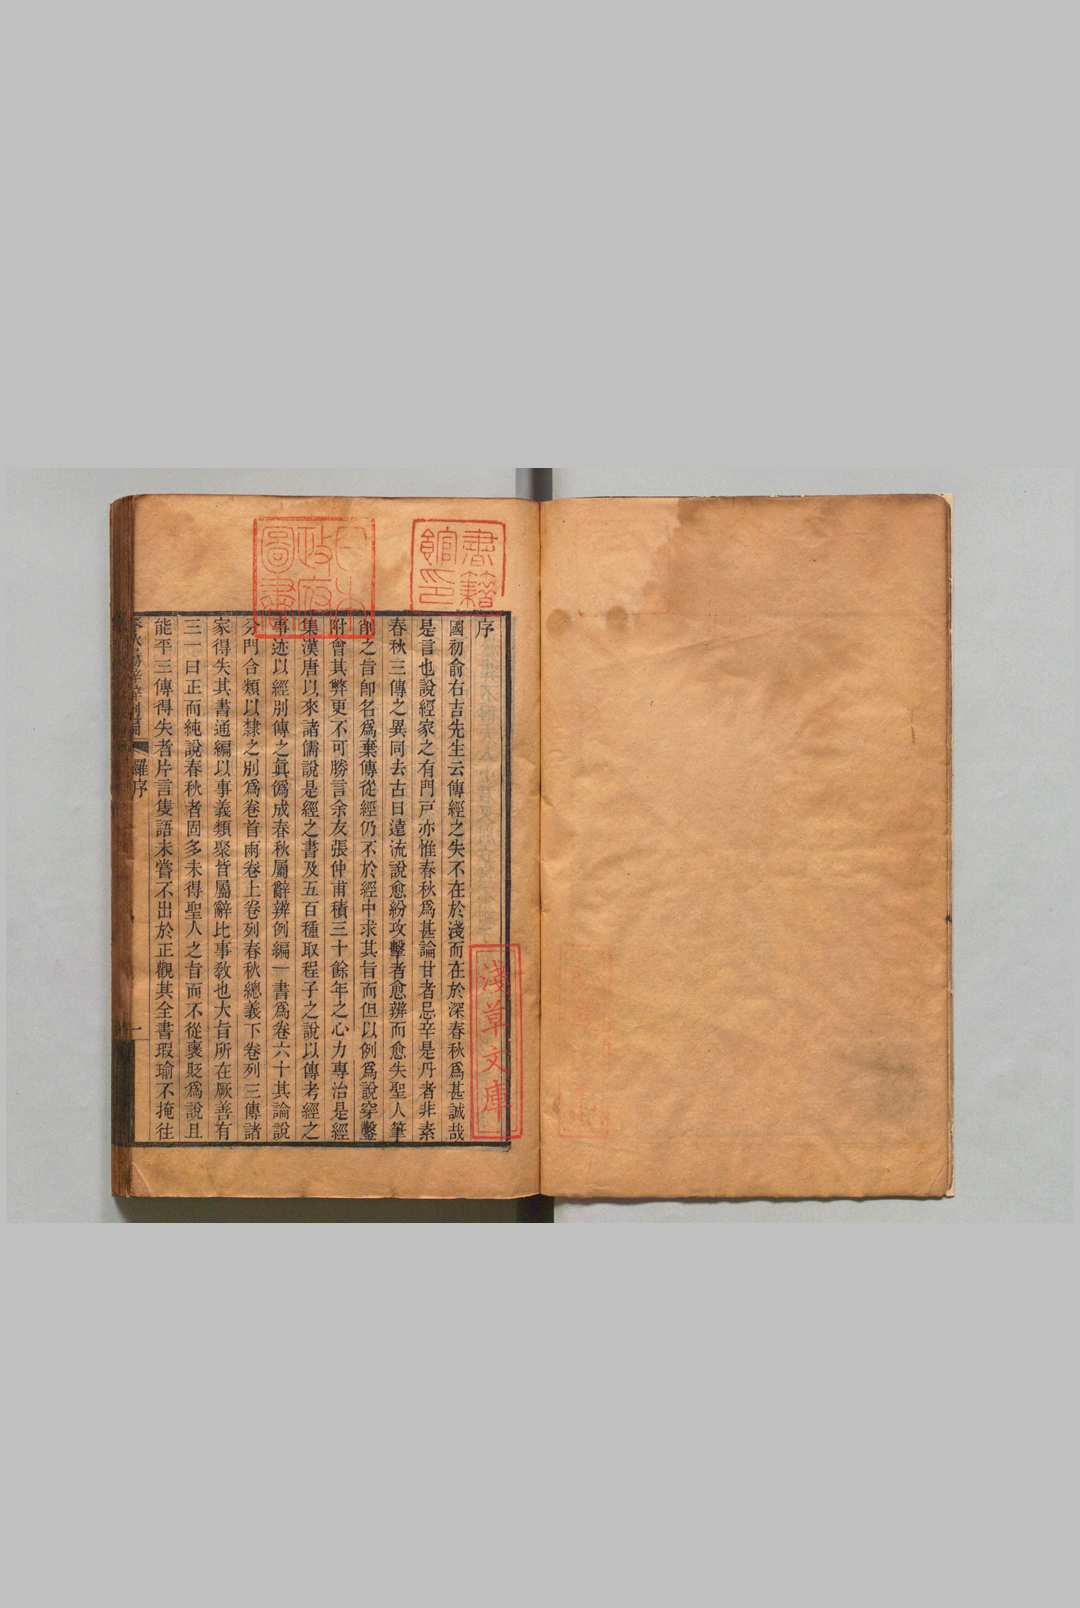 序
國初俞右吉先生云傳經之失不在於淺而在於深春秋爲甚誠哉
是言也說經家之有門戸亦惟春秋爲甚論甘者忌辛是丹者非素
春秋三傳之異同去古日遠流說愈紛攻擊者愈辨而愈失聖人筆
削之旨卽名爲棄傳從經仍不於經中求其旨而但以例爲說穿鑿
附會其弊更不可勝言余友張仲甫積三十餘年之心力專治是經
集漢唐以來諸儒說是經之書及五百種取程子之說以傳考經之
事迹以經別傳之眞僞成春秋屬辭辨例編一書爲卷六十其論說
分門合類以隸之別爲卷首兩卷上卷列春秋總義下卷列三傳諸
家得失其書通編以事義類聚皆屬辭比事敎也大旨所在厥善有
三一曰正而純說春秋者固多未得聖人之旨而不從褒貶爲說且
能平三傳得失者片言隻語未嘗不出於正觀其全書瑕瑜不掩往
春秋屬辭辨例編
羅序
一
書籍館印
日本政府圖書
淺草文庫